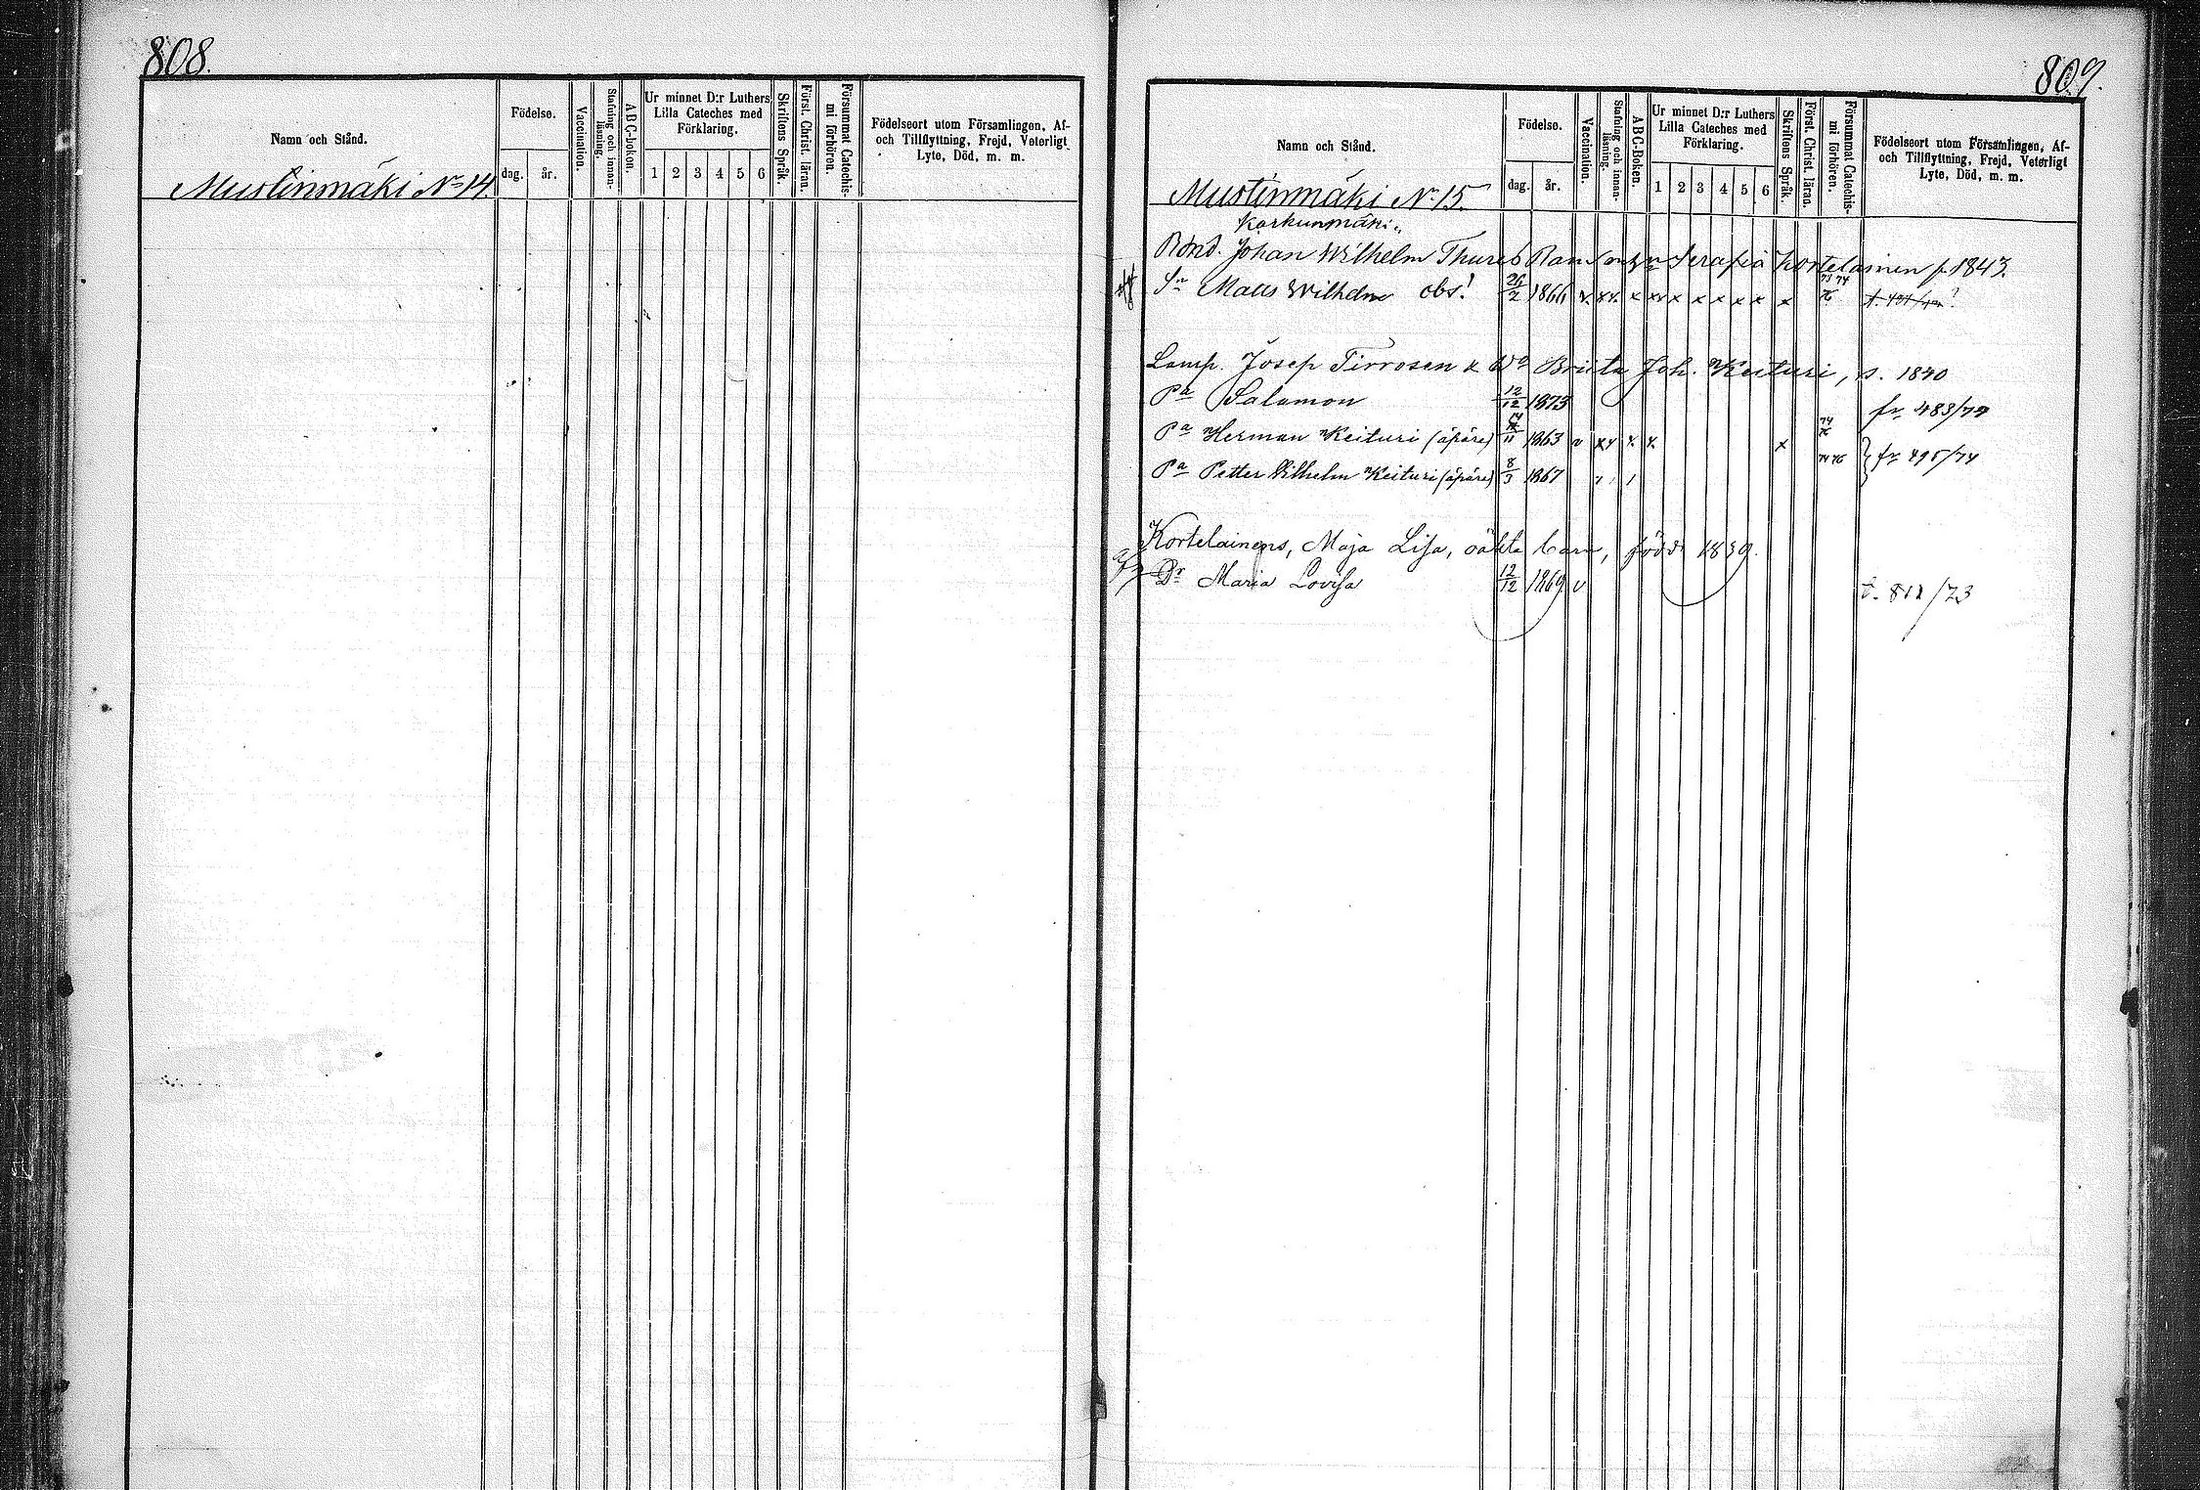 808.
Namn och Stånd.
Födelse.
dag.
år.
Vaccination.
Stafning och innan-
läsning.
A B C-boken.
Ur minnet D:r Luthers
Lilla Cateches med
Förklaring.
1 2 3 4 5 6
Skriftens Språk.
Först. Christ. läran.
Försummat Catechis-
mi förhören.
Födelseort utom Församlingen, Af-
och Tillflyttning, Frejd, Veterligt
Lyte, Död, m. m.
Mustinmäki No 14.
809.
Namn och Stånd.
Födelse.
dag.
år.
Vaccination.
Stafning och innan-
läsning.
A B C-Boken.
Ur minnet D:r Luthers
Lilla Cateches med
Förklaring.
1 2 3 4 5 6
Skriftens Språk.
Först. Christ. läran.
Försummat Catechis-
mi förhören.
Födelseort utom Församlingen, Af-
och Tillflyttning, Frejd, Veterligt
Lyte, Död, m. m.
Mustinmäki No 15.
Korkunmäki
Bond. Johan Wilhelm Kortelainen f. 1843.
Sn Mats Wilhelm obs! 26/2 1866 x x x x x x x x x
Lamp. Josep Tirrosen & Brita Joh. Keituri, 1840
Pa Salomon 12/12 1873 fr 483/74
Pa Herman Keituri (äpäre) 1863 v x x x x x
Pa Petter Vilhelm Keituri (äpäre) 8/3 1867 fr 495/74
Kortelainens, Maja Lisa, oäkta barn, född 1839.
Dr Maria Lovisa 12/12 1869 v t. 811/73